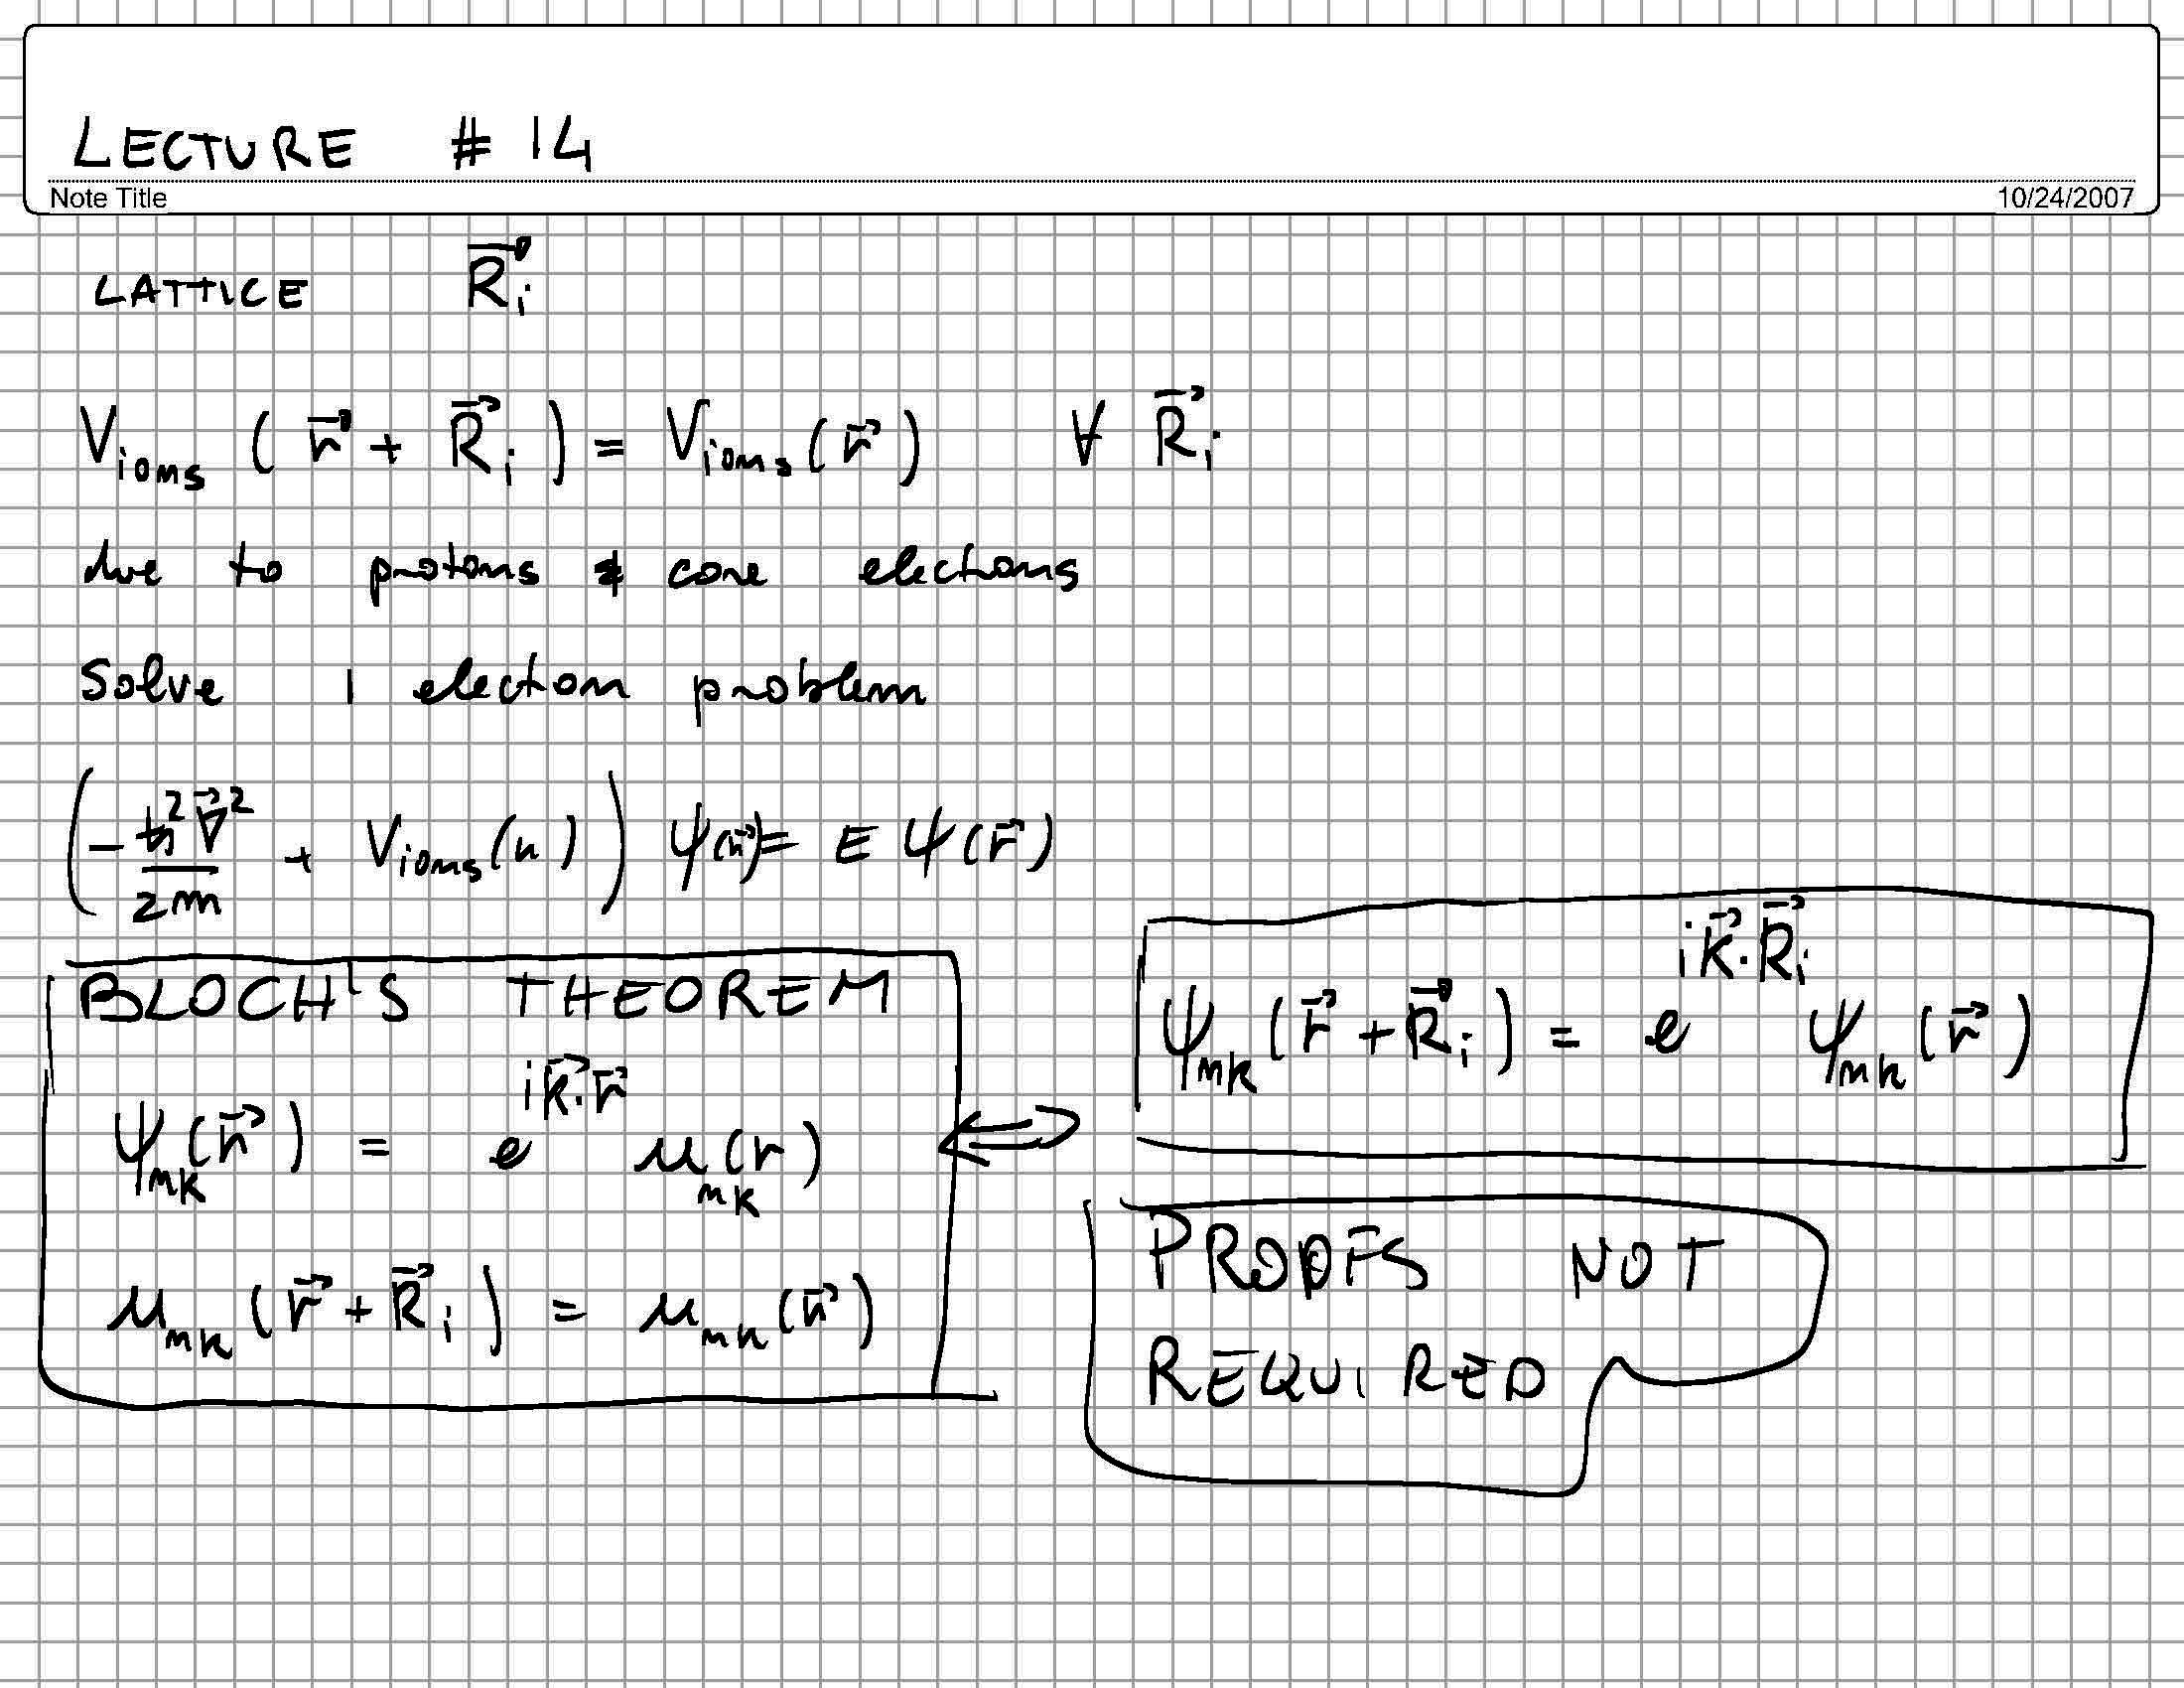 LECTURE # 14
Note Title 10/24/2007
LATTICE R⃗ᵢ
V_ions ( r⃗ + R⃗ᵢ ) = V_ions ( r⃗ ) ∀ R⃗ᵢ
due to protons & core electrons
Solve 1 electron problem
( -ħ² ∇⃗² / 2m + V_ions (r) ) ψ(r⃗) = E ψ(r⃗)
BLOCH'S THEOREM
ψ_nk (r⃗) = e^{i k⃗·r⃗} u_nk (r)
u_nk ( r⃗ + R⃗ᵢ ) = u_nk (r⃗)
⇔
ψ_nk ( r⃗ + R⃗ᵢ ) = e^{i k⃗·R⃗ᵢ} ψ_nk (r⃗)
PROOFS NOT
REQUIRED